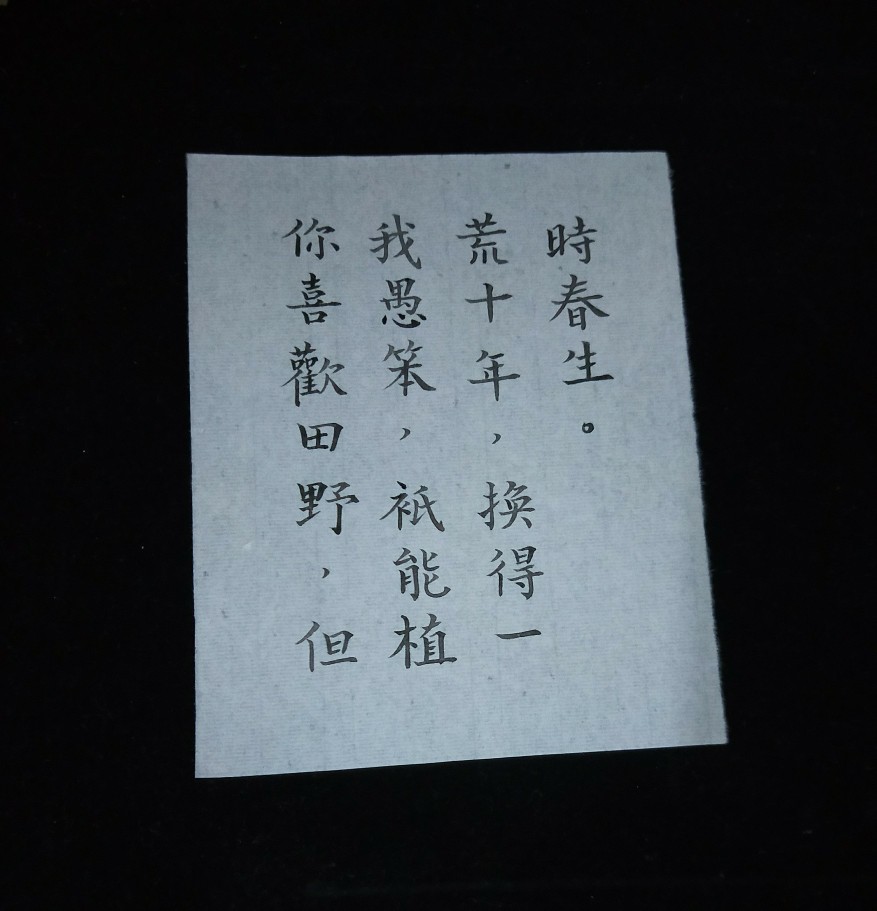 你喜歡田野，但
我愚笨，衹能植
荒十年，換得一
時春生。